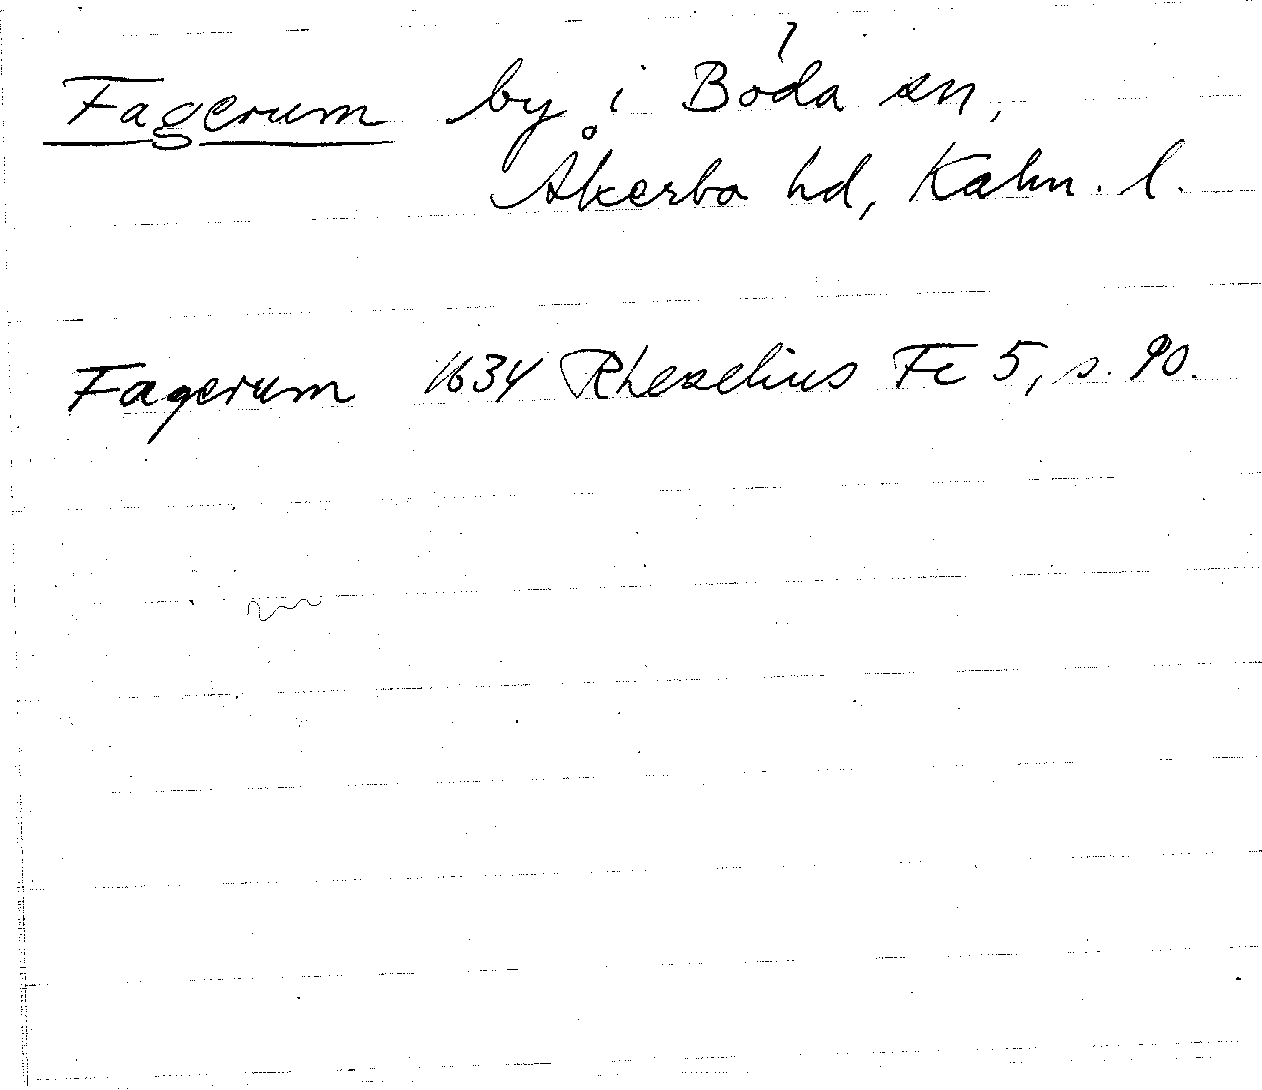 ?
Fagerum by i Böda sn,
Åkerbo hd, Kalm. l.
Fagerum 1634 Rhezelius Fc 5, s. 90.